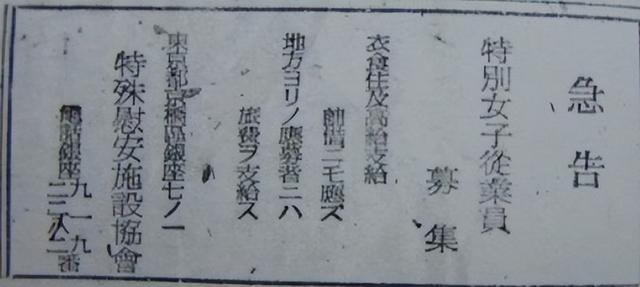 急告
特別女子従業員
募集
衣食住及高給支給
前借ニモ應ズ
地方ヨリノ應募者ニハ
旅費ヲ支給ス
東京都京橋區銀座七ノ一
特殊慰安施設協會
電話銀座
九一九番
二二八二